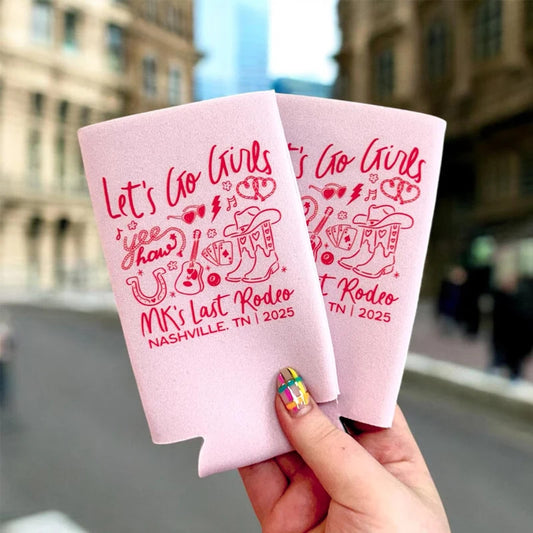 Let's Go Girls
yee
haw
MK's Last Rodeo
NASHVILLE, TN | 2025
Let's Go Girls
Last Rodeo
TN | 2025